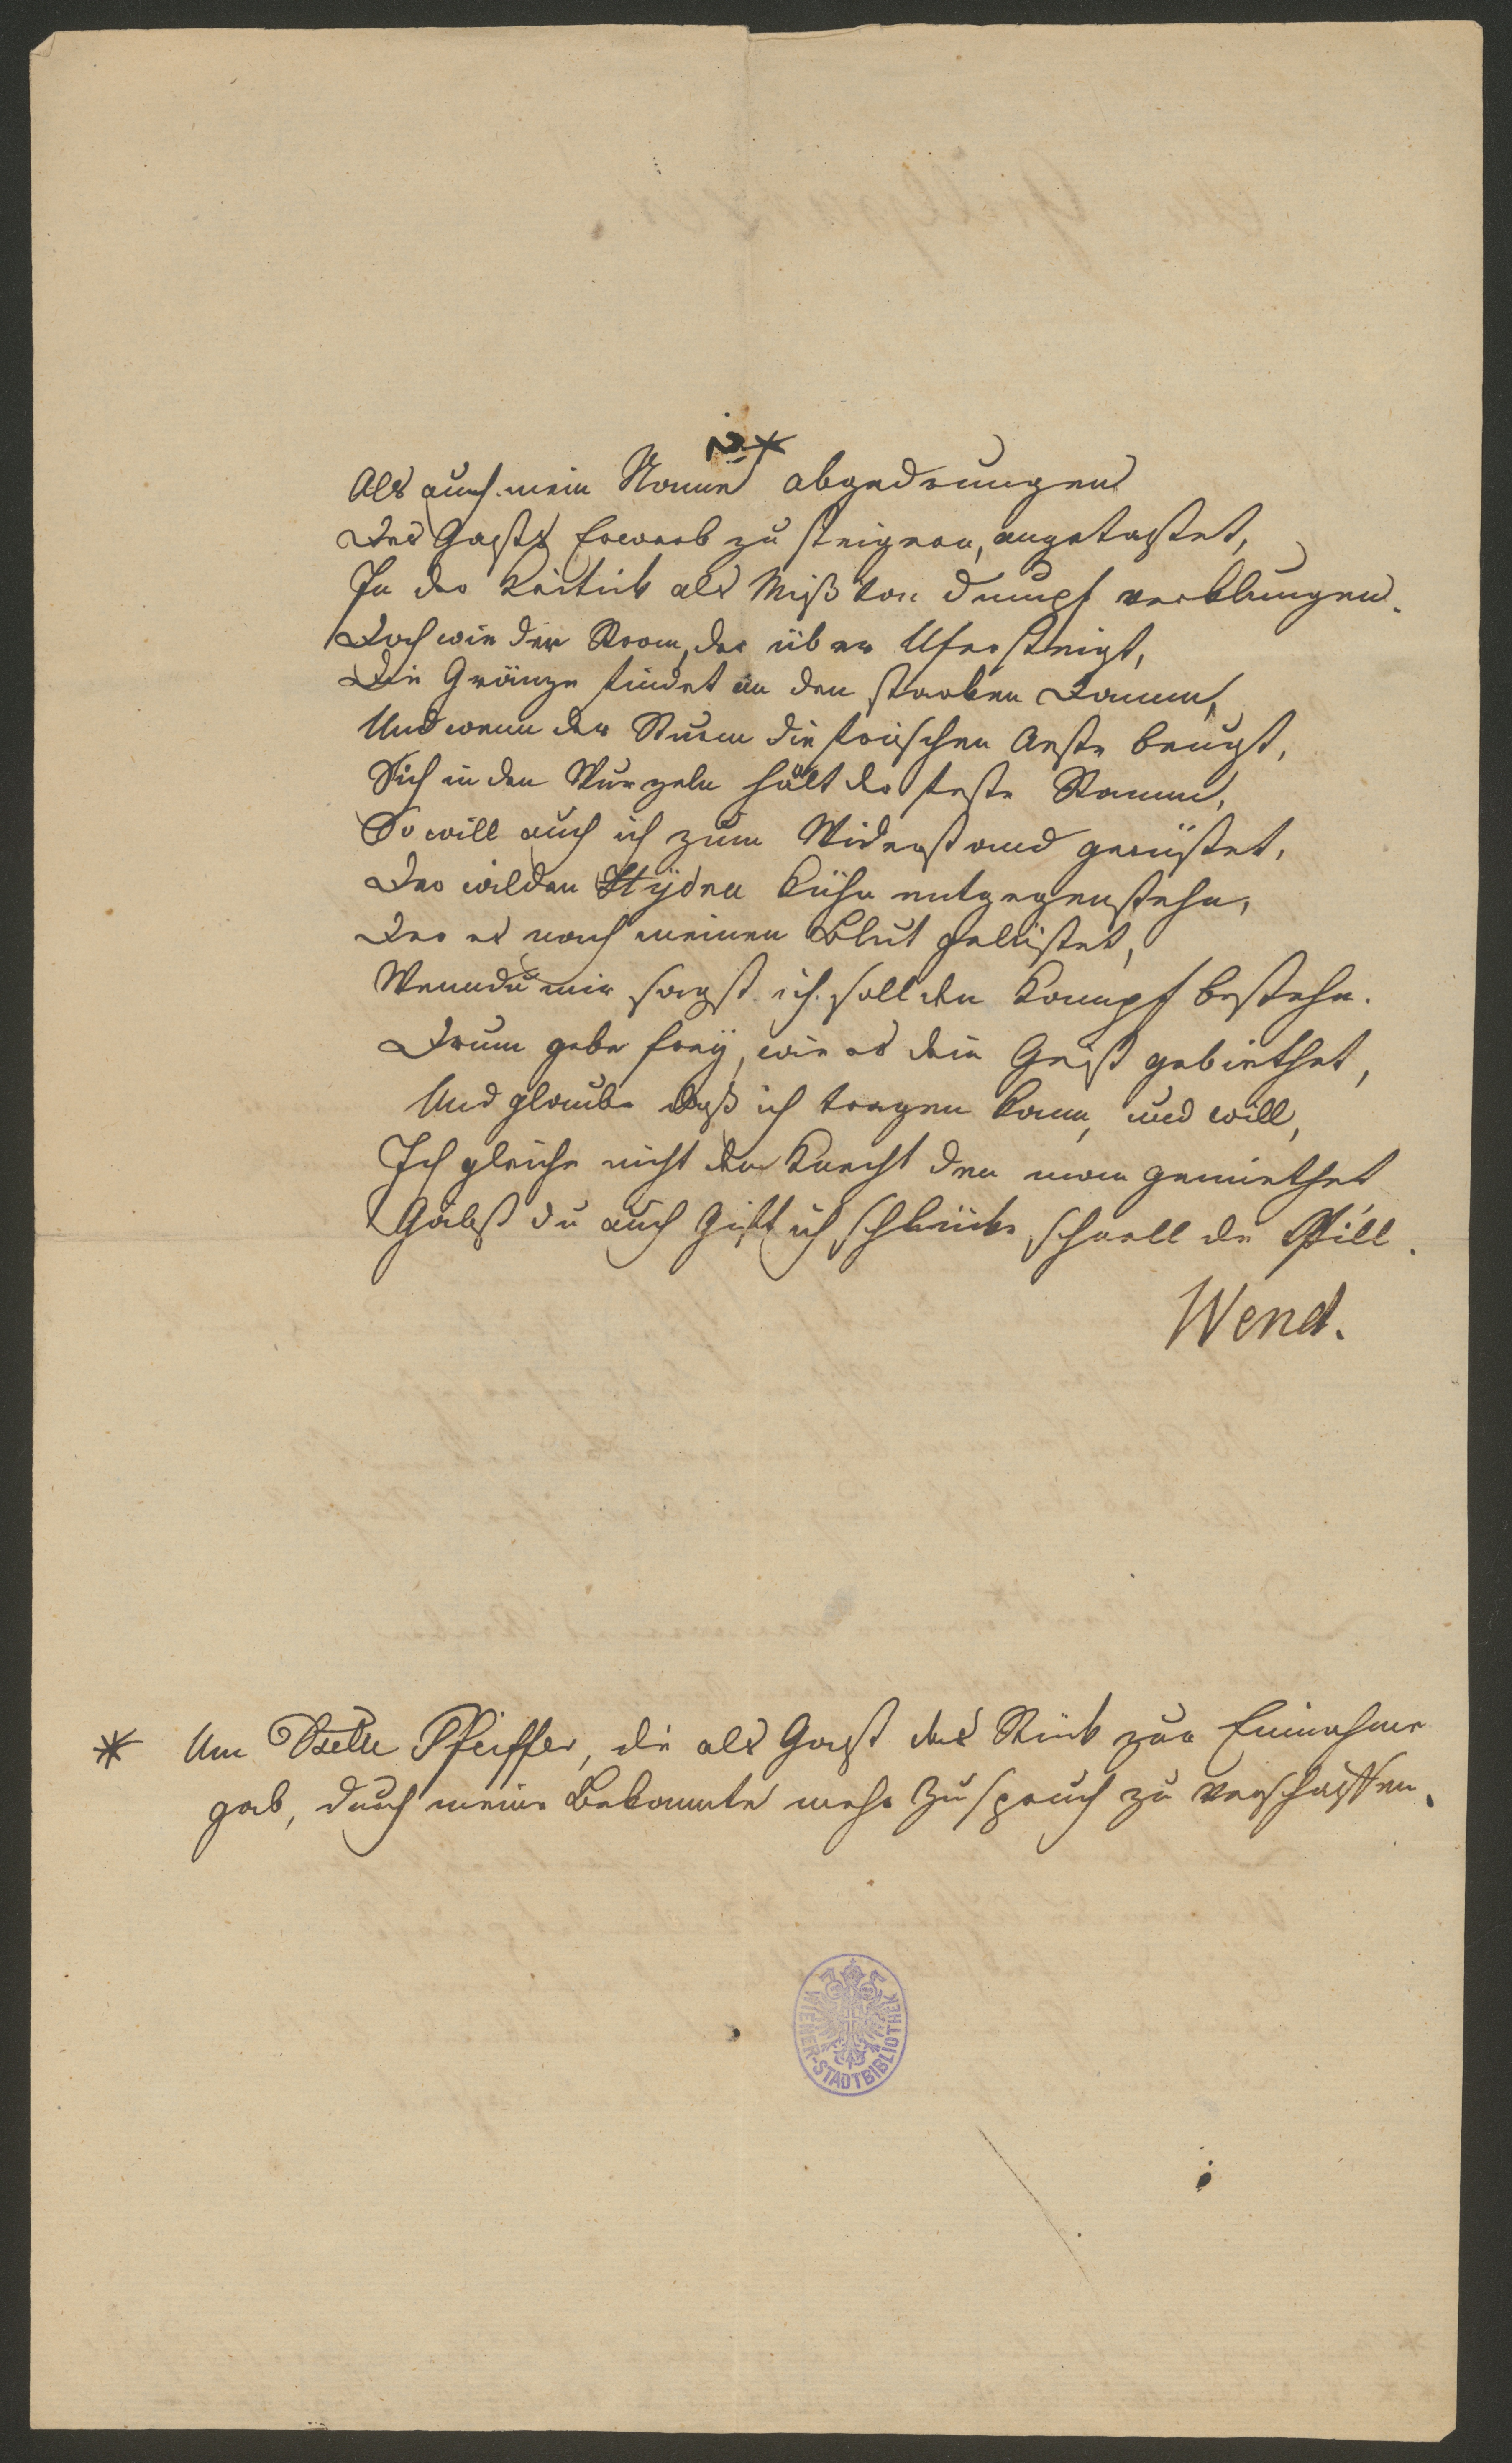 2.*
Als auch mein Name abgedrungen
Des Gasts Erwerb zu steigern, angetastet,
In der Kritik als Mißton dumpf verklungen.
Doch wie der Strom, der über Ufer steigt,
Die Gränze findet an den starken Damm,
Und wenn der Sturm die frischen Aeste beugt,
Sich in den Wurzeln hält der feste Stamm,
So will auch ich zum Widerstand gerüstet,
Der wilden Hydra kühn entgegenstehn,
Der es nach meinen Blut gelüstet,
Wenn du mir sagst ich soll den Kampf bestehn.
Drum gebe frey, wie es dein Geist gebiethet,
Und glaube daß ich tragen kann, und will,
Ich gleiche nicht den Knecht den man gemiethet
Gäbst du auch Gift ich schlücke schnell die Pill.
Wend.
* Um Dselle Pfeiffer, die als Gast das Stück zur Einnahme
gab, durch meine Bekannte mehr Zuspruch zu verschaffen.
WIENER-STADTBIBLIOTHEK